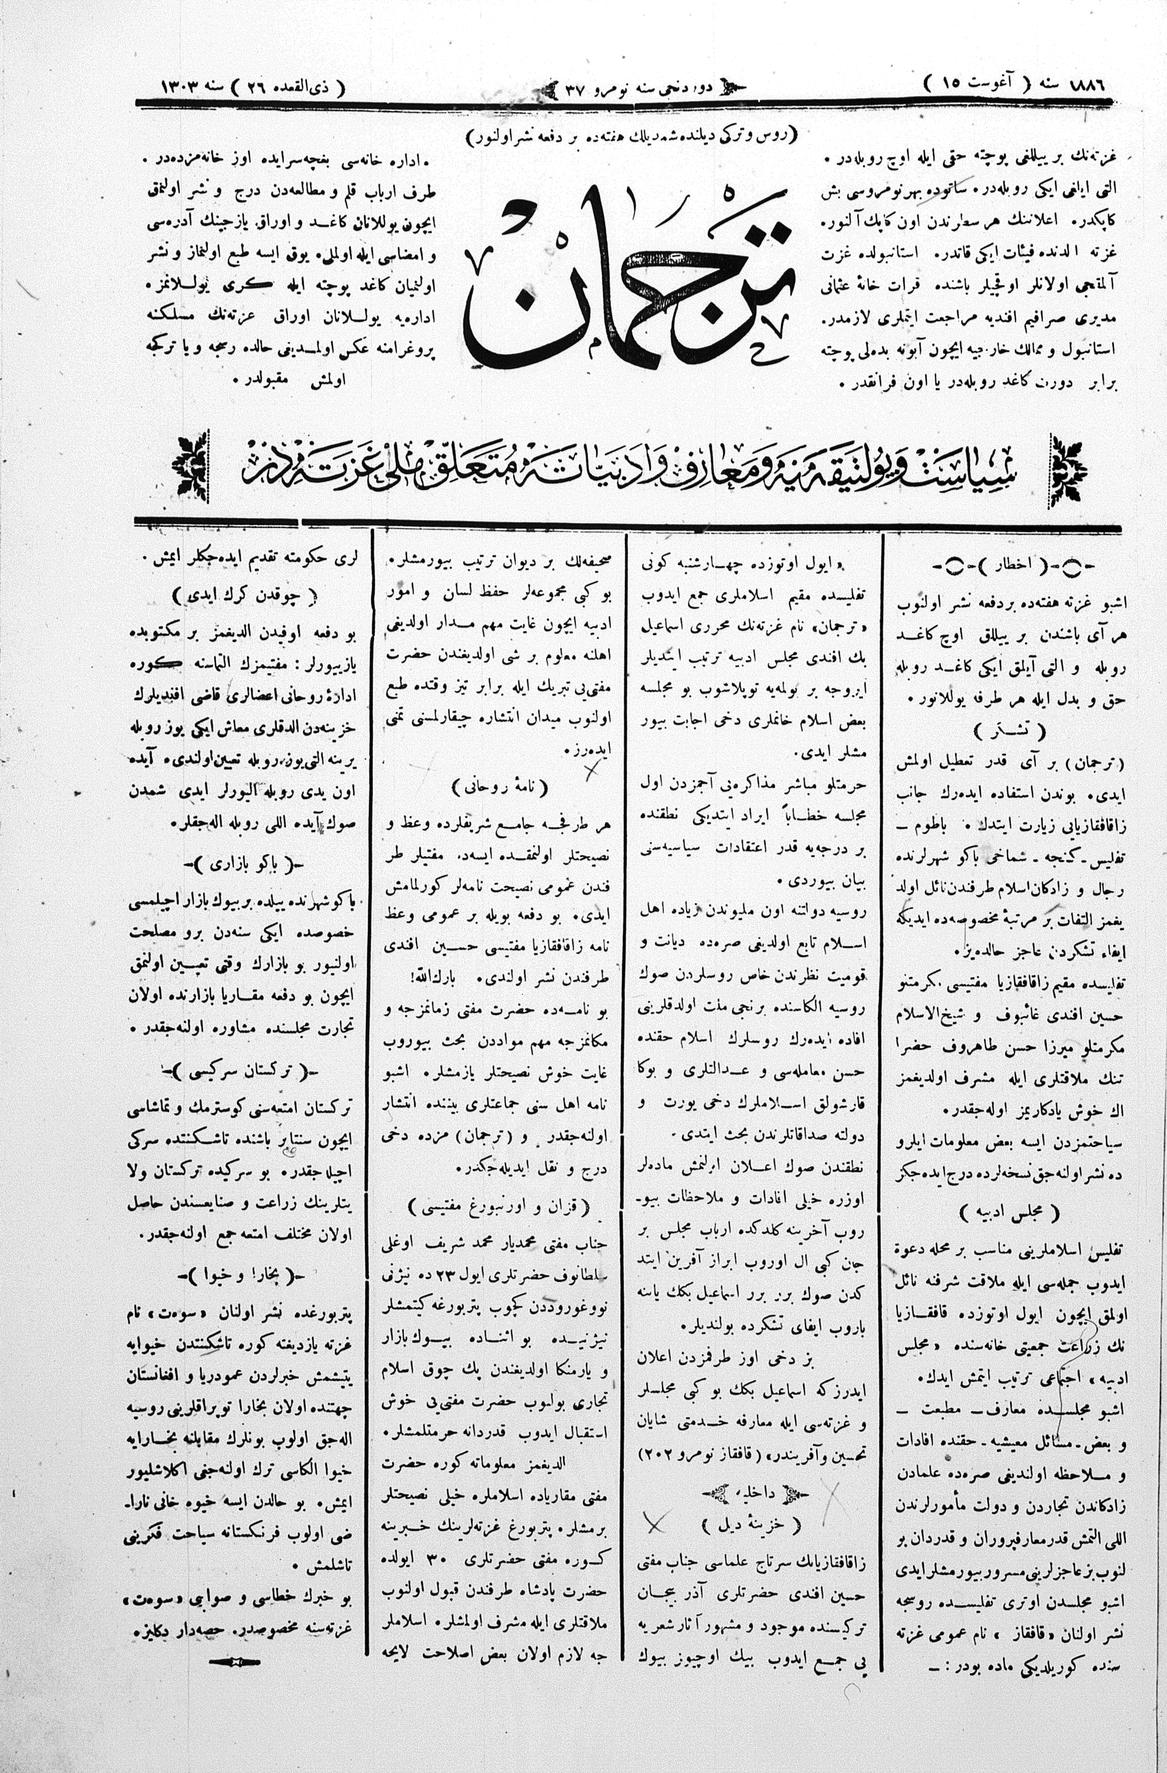 ۱۸۸٦ سنه ( آغوست ۱٥ )
دوردنجی سنه نومرو ۳۷
( ذی القعده ۲٦ ) سنه ۱۳۰۳
(روس و ترکی دیلنده شمدیلك هفته‌ده بر دفعه نشر اولنور)
غزته‌نك بر ییللغی پوچته حقی ایله اوچ روبله‌در ۰
التی ایلغی ایکی روبله‌در۰ ساتوده بهر نومروسی بش
کاپکدر۰ اعلاننك هر سطرندن اون کاپك آلنور۰
غزته الدنده فیئات ایکی قاتدر۰ استانبولده غزت
آلمه‌جی اولانلر اوقچیلر باشنده قرات خانهٔ عثمانی
مدیری صرافیم افندیه مراجعت ایتملری لازمدر۰
استانبول و ممالك خارجیه ایچون آبونه بده‌لی پوچته
برابر دورت کاغد روبله‌در یا اون فرانقدر ۰
ترجمان
۰ اداره خانه‌سی بغچه‌سرایده اوز خانه‌مزده‌در ۰
طرف ارباب قلم و مطالعه‌دن درج و نشر اولنمق
ایچون یوللانان کاغد و اوراق یازجینك آدره‌سی
و امضاسی ایله اولملی۰ یوق ایسه طبع اولنماز و نشر
اولنمیان کاغد پوچته ایله کری یوللانمز۰
اداره‌یه یوللانان اوراق غزته‌نك مسلکنه
پروغرامنه عکس اولمدیغی حالده رسجه و یا ترکجه
اولمش مقبولدر ۰
سیاست و پولتیقه‌یه و معارف و ادبیاته متعلق ملی غزته‌در
( اخطار )
اشبو غزته هفته‌ده بر دفعه نشر اولنوب
هر آی باشندن بر ییللق اوچ کاغد
روبله و التی آیلق ایکی کاغد روبله
حق و بدل ایله هر طرفه یوللانور ۰
( تشکر )
(ترجمان) بر آی قدر تعطیل اولمش
ایدی۰ بوندن استفاده ایده‌رك جانب
زاقافقازیایی زیارت ایتدك ۰ باطوم ـ
تفلیس ـ کنجه ـ شماخی باکو شهرلرنده
رجال و زادکان اسلام طرفندن نائل اولد
یغمز التفات بر مرتبهٔ مخصوصه‌ده ایدیکه
ایفاء تشکردن عاجز حالده‌یز۰
تفلیسده مقیم زاقافقازیا مفتیسی مکرمتلو
حسین افندی غائبوف و شیخ الاسلام
مکرمتلو میرزا حسن طاهروف حضرا
تنك ملاقتلری ایله مشرف اولدیغمز
اك خوش یادکاریمز اوله‌جقدر۰
سیاحتمزدن ایسه بعض معلومات ایلرو
ده نشر اولنه‌جق نسخه‌لرده درج ایده‌جکز
( مجلس ادبیه )
تفلیس اسلاملرینی مناسب بر محله دعوة
ایدوب جمله‌سی ایله ملاقت شرفنه نائل
اولمق ایچون ایول اوتوزده قافقازیا
نك زراعت جمعیتی خانه‌سنده «مجلس
ادبیه» اجتماعی ترتیب ایتمش ایدك۰
اشبو مجلسده معارف ـ مطبعت ـ
و بعض ـ مسائل معیشیه ـ حقنده افادات
و ملاحظه اولندیغی صره‌ده علمادن
زادکاندن تجاردن و دولت مأمورلرندن
اللی التمش قدر معارفپروران و قدردان بو
لنوب بز عاجزلرینی مسرور بیورمشلر ایدی
اشبو مجلسدن اوتری تفلیسده روسجه
نشر اولنان «قافقاز» نام عمومی غزته
سنده کوریلدیکی ماده بودر : ـ
« ایول اوتوزده چهارشنبه کونی
تفلیسده مقیم اسلاملری جمع ایدوب
«ترجمان» نام غزته‌نك محرری اسماعیل
بك افندی مجلس ادبیه ترتیب ایتدیلر
ایروجه بر بولمه‌یه توپلاشوب بو مجلسه
بعض اسلام خانملری دخی اجابت بیور
مشلر ایدی۰
حرمتلو مباشر مذاکره‌یی آچمزدن اول
مجلسه خطاباً ایراد ایتدیکی نطقنده
بر درجه‌یه قدر اعتقادات سیاسیه‌سنی
بیان بیوردی ۰
روسیه دولتنه اون ملیوندن زیاده اهل
اسلام تابع اولدیغی صره‌ده دیانت و
قومیت نظرندن خاص روسلردن صوك
روسیه الکاسنده برنجی ملت اولدقلرینی
افاده ایده‌رك روسلرك اسلام حقنده
حسن معامله‌سی و عدالتلری و بوکا
قارشولق اسلاملرك دخی یورت و
دولته صداقاتلرندن بحث ایتدی ۰
نطقندن صوك اعلان اولنمش ماده‌لر
اوزره خیلی افادات و ملاحظات بیو۔
روب آخرینه کلدکده ارباب مجلس بر
جان کبی ال اوروب ابراز آفرین ایتد
کدن صوك برر برر اسماعیل بکك یاننه
باروب ایفای تشکرده بولندیلر۰
بز دخی اوز طرفمزدن اعلان
ایدرزکه اسماعیل بکك بو کبی مجلسلر
و غزته‌سی ایله معارفه خدمتی شایان
تحسین و آفریندر» (قافقاز نومرو ۲۰۲)
داخلیه
( خزینهٔ دیل )
زاقافقازیانك سرتاج علماسی جناب مفتی
حسین افندی حضرتلری آذر بیجان
ترکیسنده موجود و مشهور آثار شعریه
یی جمع ایدوب بیك اوچیوز بیوك
صحیفه‌لك بر دیوان ترتیب بیورمشلر۰
بو کبی مجموعه‌لر حفظ لسان و امور
ادبیه ایچون غایت مهم مدار اولدیغی
اهلنه معلوم بر شی اولدیغندن حضرت
مفتی‌یی تبریك ایله برابر تیز وقتده طبع
اولنوب میدان انتشاره چیقارلمسنی تمنی
ایده‌رز۰
( نامهٔ روحانی )
هر طرفجه جامع شریفلرده وعظ و
نصیحتلر اولنمقده ایسه‌ده مفتیلر طر
فندن عمومی نصیحت نامه‌لر کورلمامش
ایدی۰ بو دفعه بویله بر عمومی وعظ
نامه زاقافقازیا مفتیسی حسین افندی
طرفندن نشر اولندی۰ بارك الله!
بو نامه‌ده حضرت مفتی زمانمزجه و
مکانمزجه مهم موادد‌ن بحث بیوروب
غایت خوش نصیحتلر یازمشلر۰ اشبو
نامه اهل سنی جماعتلری بیننده انتشار
اولنه‌جقدر و (ترجمان) مزده دخی
درج و نقل ایدیله‌جکدر۰
( قزان و اورنبورغ مفتیسی )
جناب مفتی محمدیار محمد شریف اوغلی
سلطانوف حضرتلری ایول ۲۳ ده نیژنی
نووغوروددن کچوب پتربورغه کیتمشلر
نیژنیده بو اثناده بیوك بازار
و یارمنکا اولدیغندن پك چوق اسلام
تجاری بولنوب حضرت مفتی‌یی خوش
استقبال ایدوب قدردانه حرمتلمشلر۰
الدیغمز معلوماته کوره حضرت
مفتی مقاریاده اسلاملره خیلی نصیحتلر
برمشلر۰ پتربورغ غزته‌لرینك خبرینه
کوره مفتی حضرتلری ۳۰ ایولده
حضرت پادشاه طرفندن قبول اولنوب
ملاقتلری ایله مشرف اولمشلر۰ اسلاملر
جه لازم اولان بعض اصلاحت لایحه
لری حکومته تقدیم ایده‌جکلر ایمش ۰
( چوقدن کرك ایدی )
بو دفعه اوفیدن الدیغمز بر مکتوبده
یازییورلر : مفتیمزك التماسنه کوره
ادارهٔ روحانی اعضالری قاضی افندیلرك
خزینه‌دن الدقلری معاش ایکی یوز روبله
یرینه التی یوز روبله تعیین اولندی۰ آیده
اون یدی روبله الیورلر ایدی شمدن
صوك آیده اللی روبله اله‌جقلر۰
( باکو بازاری )
باکو شهرنده ییلده بر بیوك بازار اچیلمسی
خصوصده ایکی سنه‌دن برو مصلحت
اولنیور بو بازارك وقتی تعیین اولنمق
ایچون بو دفعه مقاریا بازارنده اولان
تجارت مجلسنده مشاوره اولنه‌جقدر ۰
( ترکستان سرکیسی )
ترکستان امتعه‌سنی کوسترمك و تماشاسی
ایچون سنتابر باشنده تاشکنتده سرکی
اچیله‌جقدر۰ بو سرکیده ترکستان ولا
یتلرینك زراعت و صنایعسندن حاصل
اولان مختلف امتعه جمع اولنه‌جقدر۰
( بخارا و خیوا )
پتربورغده نشر اولنان «سوه‌ت» نام
غزته یازدیغنه کوره تاشکنتدن خیوایه
یتیشمش خبرلردن عمودریا و افغانستان
جهتنده اولان بخارا توپراقلرینی روسیه
اله‌جق اولوب بونلرك مقابلنه بخارایه
خیوا الکاسی ترك اولنه‌جغی اکلاشلیور
ایمش۰ بو حالدن ایسه خیوه خانی نارا۔
ضی اولوب فرنکستانه سیاحت فکرینی
تاشلمش ۰
بو خبرك خطاسی و صوابی «سوه‌ت»
غزته‌سنه مخصوصدر۰ حصه‌دار دکلیز۰